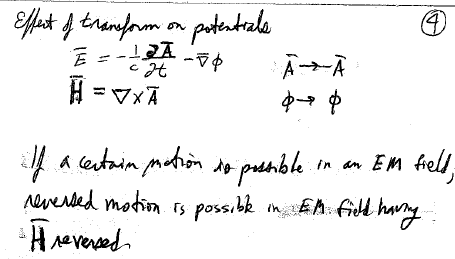 Effect of transform on potentials
④
E̅ = -1/c ∂A̅/∂t - ∇̅φ
A̅ → -A̅
H̅ = ∇×A̅
φ → φ
If a certain motion is possible in an EM field,
reversed motion is possible in EM field having
H̅ reversed